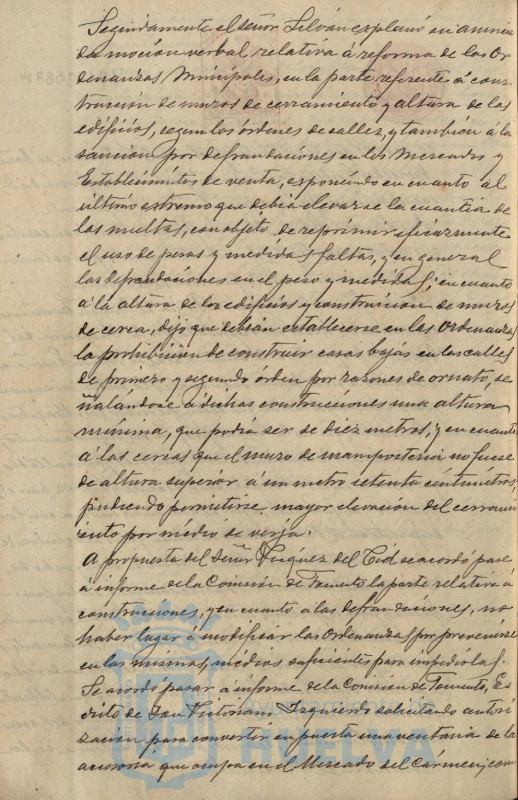 Seguidamente el señor Silván explanó su anuncia-
da moción verbal relativa á reforma de las Or-
denanzas Municipales, en la parte referente á cons-
trucción de muros de cerramiento y altura de los
edificios, segun los órdenes de calles, y tambien á la
sancion por defraudaciones en los Mercados y
Establecimientos de venta, exponiendo en cuanto al
último extremo que debia elevarse la cuantia de
las multas, con objeto de reprimir eficazmente
el uso de pesas y medidas faltas, y en general
las defraudaciones en el peso y medida; en cuanto
á la altura de los edificios y construccion de muros
de cerca, dijo que debian establecerse en las Ordenanzas
la prohibicion de construir casas bajas en las calles
de primero y segundo órden por razones de ornato, se-
ñalándose á dichas construcciones una altura
mínima, que podia ser de diez metros, y en cuanto
á las cercas que el muro de mamposteria no fuese
de altura superior á un metro setenta centímetros,
pudiendo permitirse mayor elevación del cerrami-
ento por medio de verja.
A propuesta del Señor Vazquez del Cid se acordó pase
á informe de la Comisión de Fomento la parte relativa á
construcciones, y en cuanto á las defraudaciones, no
haber lugar á modificar las Ordenanzas por prevenirse
en las mismas, medios suficientes para impedirlas.
Se acordó pasar á informe de la Comision de Fomento, Es-
crito de Don Victoriano Izquierdo solicitando autori-
zación para convertir en puerta una ventana de la
accesoria que ocupa en el Mercado del Cármen, con
AYUNTAMIENTO DE
HUELVA